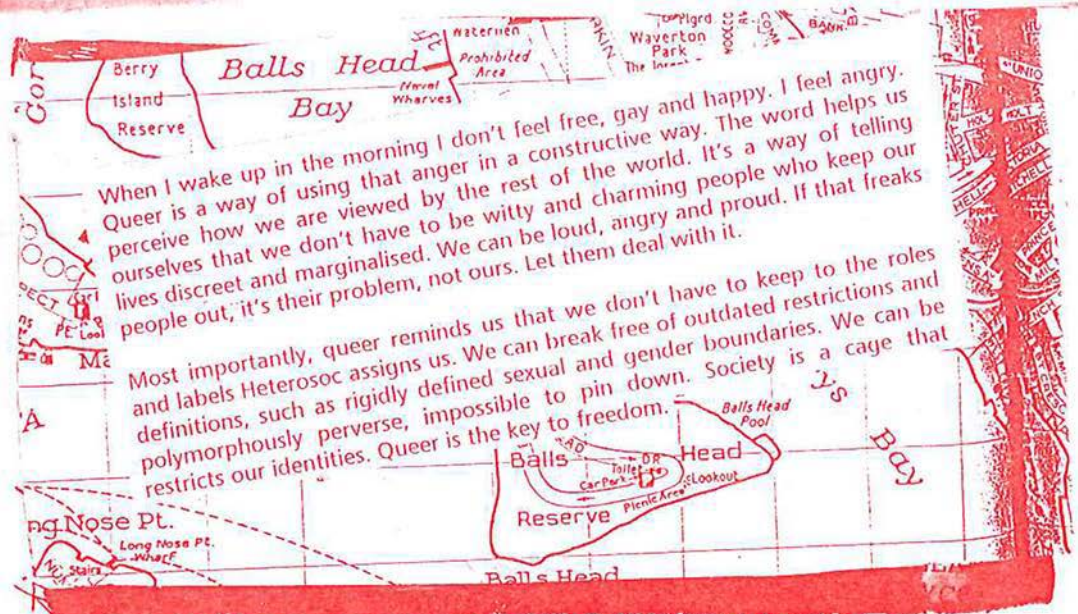 Berry
Island
Reserve
Balls Head
Bay
Naval
Wharves
Prohibited
Area
Waverton
Park
When I wake up in the morning I don't feel free, gay and happy. I feel angry.
Queer is a way of using that anger in a constructive way. The word helps us
perceive how we are viewed by the rest of the world. It's a way of telling
ourselves that we don't have to be witty and charming people who keep our
lives discreet and marginalised. We can be loud, angry and proud. If that freaks
people out, it's their problem, not ours. Let them deal with it.
Most importantly, queer reminds us that we don't have to keep to the roles
and labels Heterosoc assigns us. We can break free of outdated restrictions and
definitions, such as rigidly defined sexual and gender boundaries. We can be
polymorphously perverse, impossible to pin down. Society is a cage that
restricts our identities. Queer is the key to freedom.
Balls Head
Pool
Bay
Balls Head
DR
Toilet
Car Park
Lookout
Picnic Area
Reserve
Nose Pt.
Long Nose Pt.
Wharf
Stairs
Balls Head